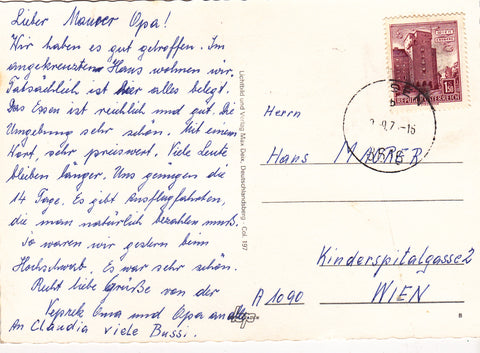 Lieber Maurer Opa!
Wir haben es gut getroffen. Im
angekreuzten Haus wohnen wir.
Tatsächlich ist hier alles belegt.
Das Essen ist reichlich und gut. Die
Umgebung sehr schön. Mit einem
Wort, sehr preiswert. Viele Leute
bleiben länger. Uns genügen die
14 Tage. Es gibt Ausflugfahrten,
die man natürlich bezahlen muß.
So waren wir gestern beim
Hochschwab. Es war sehr schön.
Recht liebe Grüße von der
Oma und Opa an alle
An Claudia viele Bussi.
Lichtbild und Verlag Max Deix, Deutschlandsberg · Col. 197
REPUBLIK ÖSTERREICH
1.50
Herrn
Hans MAURER
Kinderspitalgasse 2
A 1090 WIEN
8